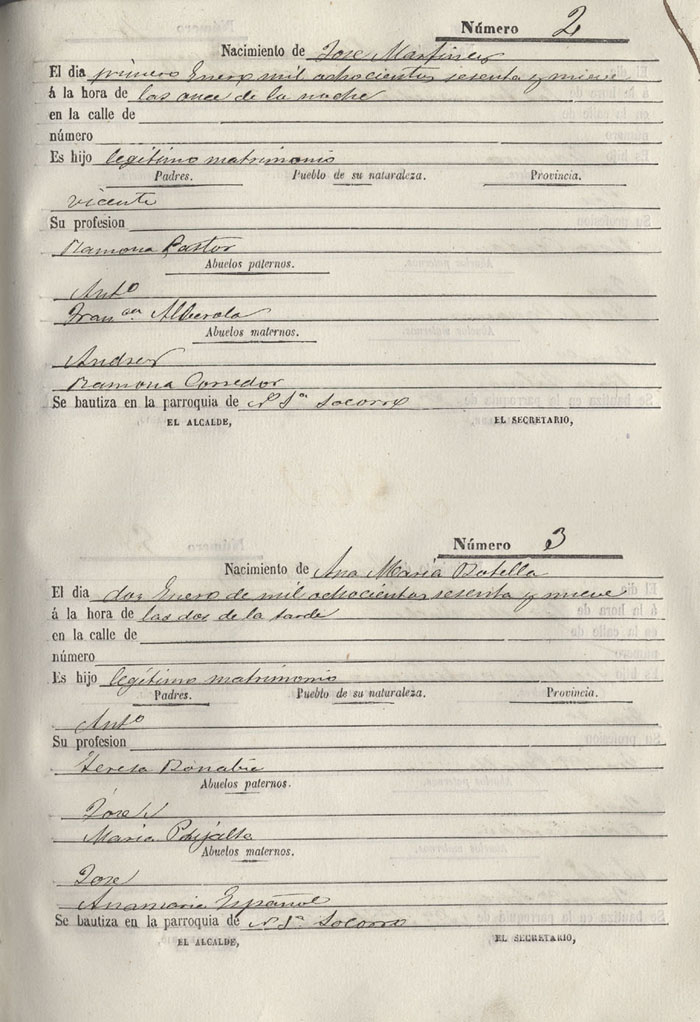 Número 2
Nacimiento de Jose Martinez
El dia primero Enero mil ochocientos sesenta y nueve
á la hora de las once de la noche
en la calle de
número
Es hijo legitimo matrimonio
Padres. Pueblo de su naturaleza. Provincia.
Vicente
Su profesion
Ramona Pastor
Abuelos paternos.
Antº
Franca Alberola
Abuelos maternos.
Andres
Ramona Corredor
Se bautiza en la parroquia de N Sª Socorro
EL ALCALDE, EL SECRETARIO,
Número 3
Nacimiento de Ana Maria Botella
El dia dos Enero de mil ochocientos sesenta y nueve
á la hora de las dos de la tarde
en la calle de
número
Es hijo legitimo matrimonio
Padres. Pueblo de su naturaleza. Provincia.
Antº
Su profesion
Teresa
Abuelos paternos.
Jose
Maria
Abuelos maternos.
Jose
Anamaria Español
Se bautiza en la parroquia de N Sª Socorro
EL ALCALDE, EL SECRETARIO,